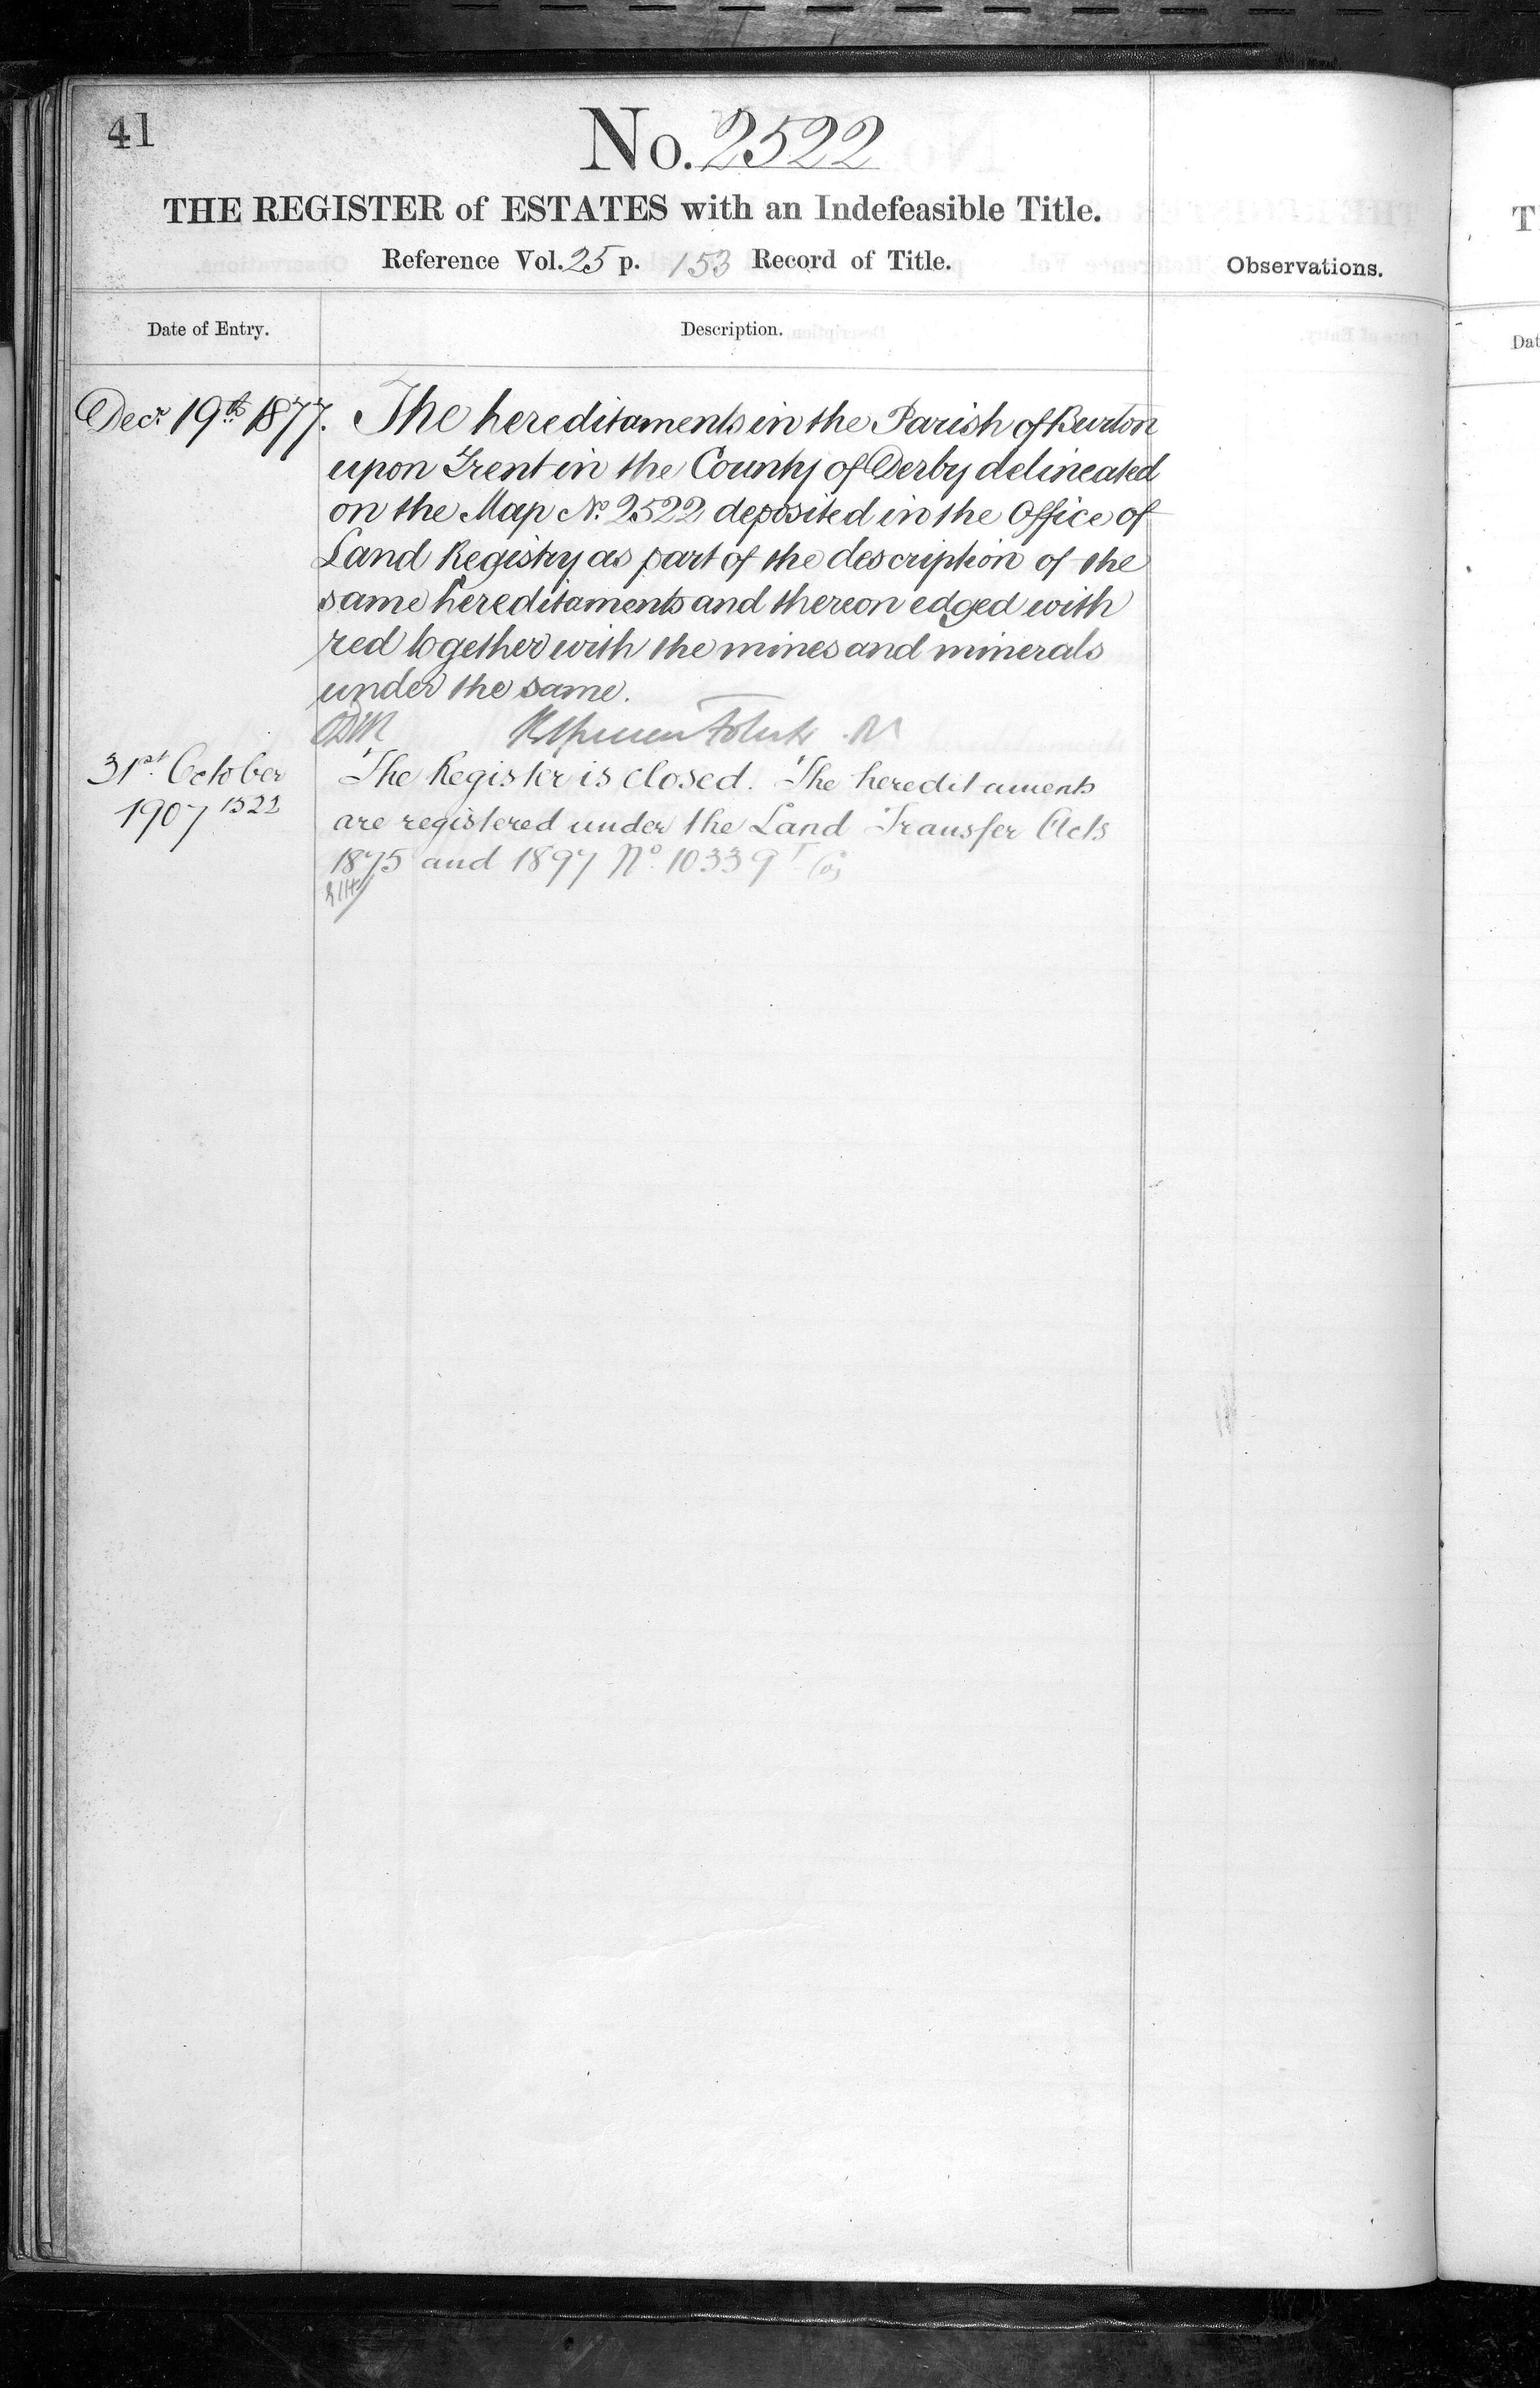 41
No. 2522
THE REGISTER of ESTATES with an Indefeasible Title.
Reference Vol. 25 p. 153 Record of Title.
Observations.
Date of Entry.
Description.
Decr 19th 1877. The hereditaments in the Parish of Burton
upon Trent in the County of Derby delineated
on the Map No. 2522 deposited in the Office of
Land Registry as part of the description of the
same hereditaments and thereon edged with
red together with the mines and minerals
under the same.
31st October
1907 1522
The Register is closed. The hereditaments
are registered under the Land Transfer Acts
1875 and 1897 No 10339
T
Dat